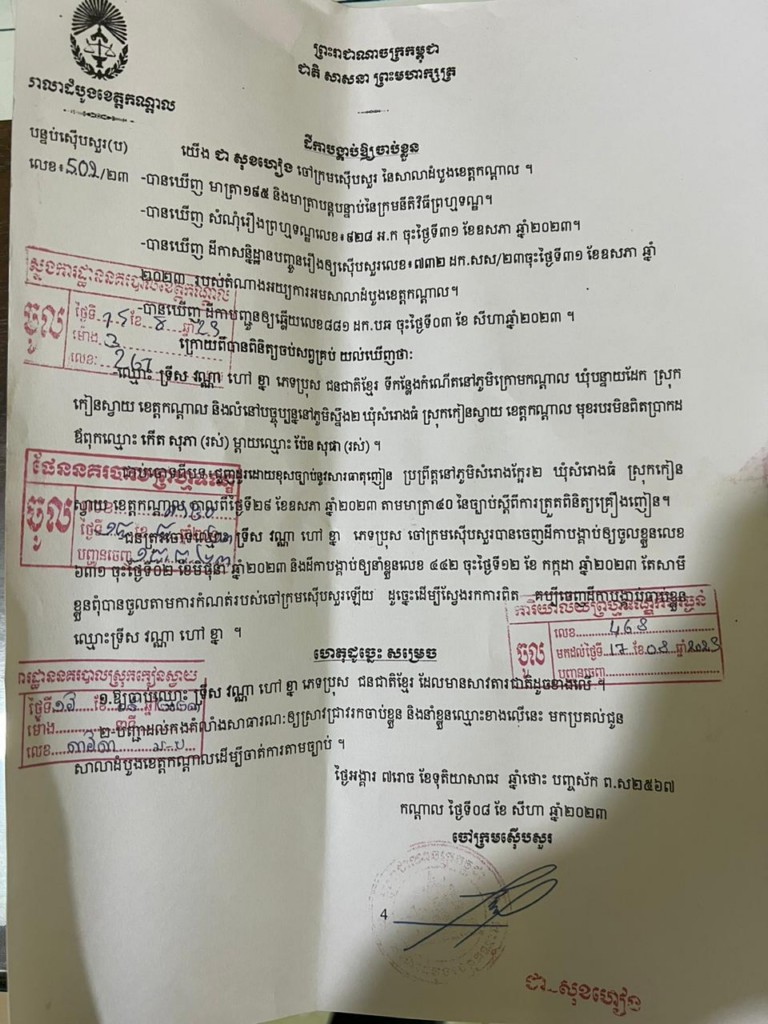 ព្រះរាជាណាចក្រកម្ពុជា
ជាតិ សាសនា ព្រះមហាក្សត្រ
សាលាដំបូងខេត្តកណ្តាល
ដីកាបន្គាប់ឱ្យចាប់ខ្លួន
បន្ទប់ស៊ើបសួរ(ប)
លេខ៖ /២៣
យើង ជា សុខហៀង ចៅក្រមស៊ើបសួរ នៃសាលាដំបូងខេត្តកណ្តាល ។
-បានឃើញ មាត្រា១៩៥ និងមាត្រាបន្តបន្ទាប់នៃក្រមនីតិវិធីព្រហ្មទណ្ឌ។
-បានឃើញ សំណុំរឿងព្រហ្មទណ្ឌលេខ៖៩២៨ អ.ក ចុះថ្ងៃទី៣១ ខែឧសភា ឆ្នាំ២០២៣។
-បានឃើញ ដីកាសន្និដ្ឋានបញ្ជូនរឿងឲ្យស៊ើបសួរលេខ៖៧៣២ ដក.សស/២៣ចុះថ្ងៃទី៣១ ខែឧសភា ឆ្នាំ
២០២៣ របស់តំណាងអយ្យការអមសាលាដំបូងខេត្តកណ្តាល។
-បានឃើញ ដីកាបញ្ជូនឲ្យឆ្លើយលេខ៨៨១ ដក.បឆ ចុះថ្ងៃទី០៣ ខែ សីហាឆ្នាំ២០២៣ ។
ក្រោយពីបានពិនិត្យចប់សព្វគ្រប់ យល់ឃើញថា:
-ឈ្មោះ ទ្រីស វណ្ណា ហៅ ខ្នា ភេទប្រុស ជនជាតិខ្មែរ ទីកន្លែងកំណើតនៅភូមិក្រោមកណ្តាល ឃុំបន្ទាយដែក ស្រុក
កៀនស្វាយ ខេត្តកណ្តាល និងលំនៅបច្ចុប្បន្ននៅភូមិស្ទឹង២ ឃុំសំរោងធំ ស្រុកកៀនស្វាយ ខេត្តកណ្តាល មុខរបរមិនពិតប្រាកដ
ឪពុកឈ្មោះ កើត សុភា (រស់) ម្តាយឈ្មោះ ប៉ែន សុផា (រស់) ។
ជាប់ចោទពីបទ៖ជួញដូរដោយខុសច្បាប់នូវសារធាតុញៀន ប្រព្រឹត្តនៅភូមិសំរោងក្អែរ២ ឃុំសំរោងធំ ស្រុកកៀន
ស្វាយ ខេត្តកណ្តាល កាលពីថ្ងៃទី២៩ ខែឧសភា ឆ្នាំ២០២៣ តាមមាត្រា៤០ នៃច្បាប់ស្តីពីការត្រួតពិនិត្យគ្រឿងញៀន។
ជនត្រូវចោទឈ្មោះ ទ្រីស វណ្ណា ហៅ ខ្នា ភេទប្រុស ចៅក្រមស៊ើបសួរបានចេញដីកាបង្គាប់ឲ្យចូលខ្លួនលេខ
៦៣១ ចុះថ្ងៃទី០២ ខែមិថុនា ឆ្នាំ២០២៣ និងដីកាបង្គាប់ឲ្យនាំខ្លួនលេខ ៤៤២ ចុះថ្ងៃទី១២ ខែ កក្កដា ឆ្នាំ២០២៣ តែសាមី
ខ្លួនពុំបានចូលតាមការកំណត់របស់ចៅក្រមស៊ើបសួរឡើយ ដូច្នេះដើម្បីស្វែងរកការពិត គប្បីចេញដីកាបង្គាប់ចាប់ខ្លួន
ឈ្មោះទ្រីស វណ្ណា ហៅ ខ្នា ។
ហេតុដូច្នេះ សម្រេច
១.ឱ្យចាប់ឈ្មោះ ទ្រីស វណ្ណា ហៅ ខ្នា ភេទប្រុស ជនជាតិខ្មែរ ដែលមានសាវតារជាតិដូចខាងលើ ។
២-បញ្ជាដល់កងកំលាំងសាធារណ:ឲ្យស្រាវជ្រាវរកចាប់ខ្លួន និងនាំខ្លួនឈ្មោះខាងលើនេះ មកប្រគល់ជូន
សាលាដំបូងខេត្តកណ្តាលដើម្បីចាត់ការតាមច្បាប់ ។
ថ្ងៃអង្គារ ៧រោច ខែទុតិយាសាឍ ឆ្នាំថោះ បញ្ចស័ក ព.ស២៥៦៧
កណ្តាល ថ្ងៃទី០៨ ខែ សីហា ឆ្នាំ២០២៣
ចៅក្រមស៊ើបសួរ
4
ជា សុខហៀង
ស្នងការដ្ឋាននគរបាលខេត្តកណ្តាល
ចូល
ថ្ងៃទី 15 ខែ 8 ឆ្នាំ 23
ម៉ោង 3
លេខ:
ផែននគរបាលព្រហ្មទណ្ឌ
ចូល
ថ្ងៃទី
បញ្ជានចេញ
ចូល
លេខ 468
មកដល់ថ្ងៃទី 17 ខែ 08 ឆ្នាំ 2023
បញ្ជានចេញ
ការដ្ឋាននគរបាលស្រុកកៀនស្វាយ
ថ្ងៃទី
ម៉ោង
លេខ